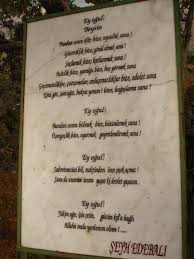 Ey oğul!
Beysin
Bundan sonra öfke bize, uysallık sana!
Güceniklik bize, gönül almak sana!
Suçlamak bize, katlanmak sana!
Acizlik bize, yanılgı bize, hoş görmek sana!
Geçimsizlikler, çatışmalar, anlaşmazlıklar bize, adalet sana!
Kötü göz, şom ağız, haksız yorum bize, bağışlama sana!
Ey oğul!
Bundan sonra bölmek bize, bütünlemek sana!
Üşengeçlik bize, uyarmak, gayretlendirmek sana!
Ey oğul!
Sabretmesini bil, vaktinden önce çiçek açmaz!
Şunu da unutma! insanı yaşat ki devlet yaşasın.
Ey oğul!
Yükün ağır, işin çetin, gücün kıl'a bağlı
Allahü teala yardımcın olsun!...
ŞEYH EDEBALİ